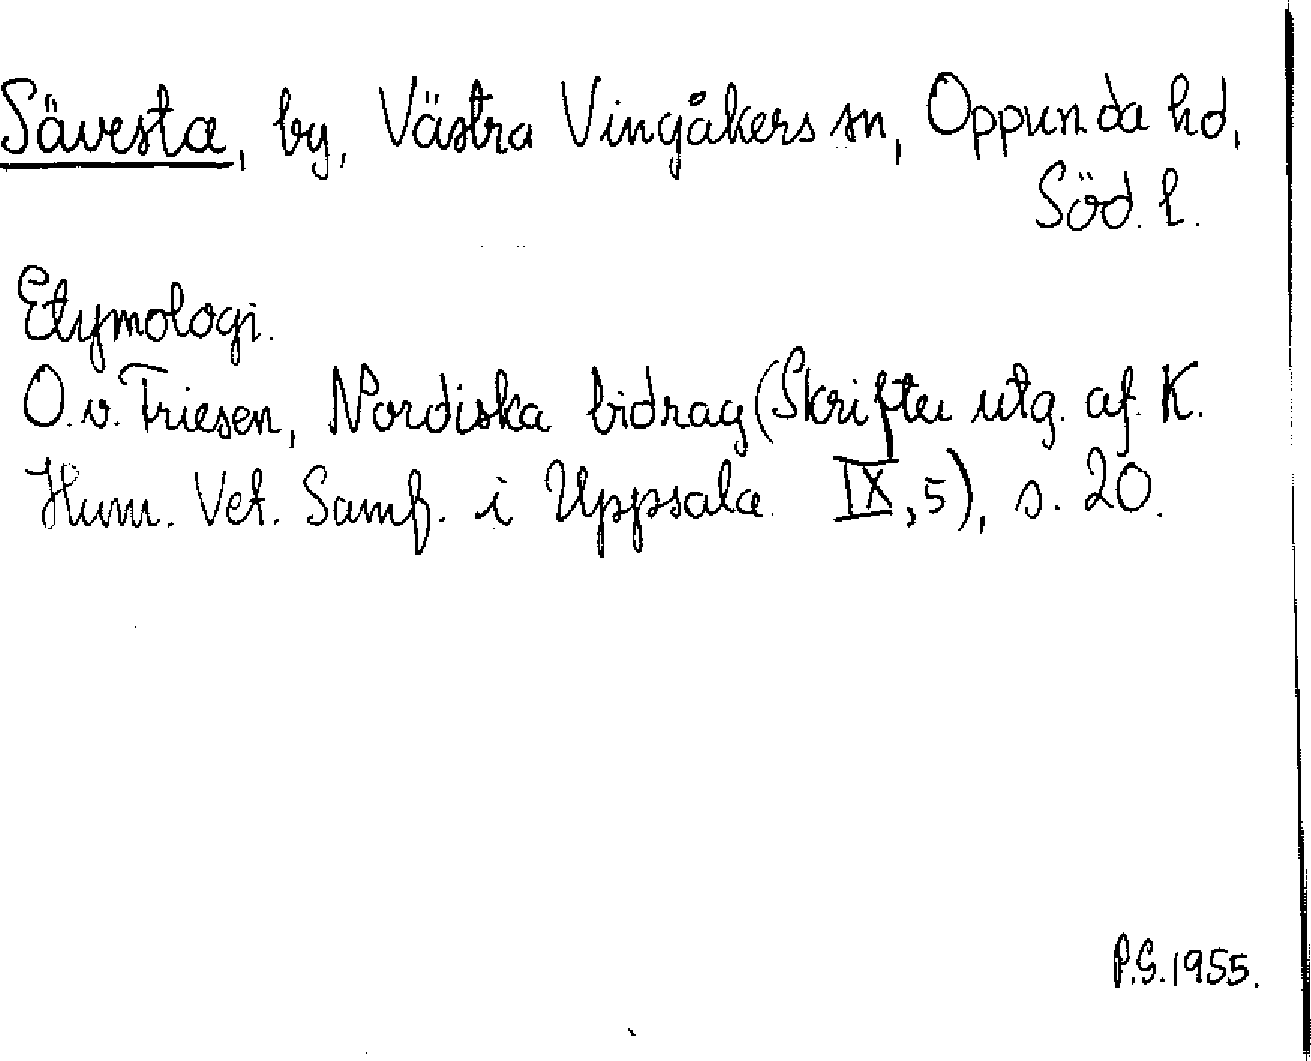 Sävesta, by, Västra Vingåkers sn, Oppunda hd,
Söd. l.
Etymologi.
O. v. Friesen, Nordiska bidrag (Skrifter utg. af K.
Hum. Vet. Samf. i Uppsala IX, 5), s. 20.
P.G. 1955.